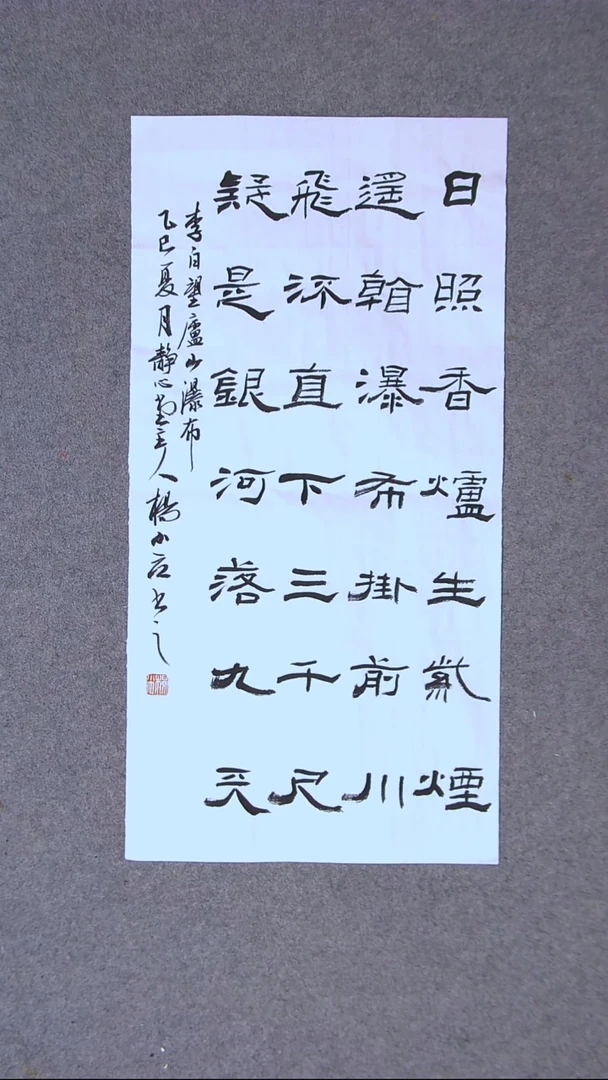 日照香爐生紫煙
遥看瀑布掛前川
飛流直下三千尺
疑是銀河落九天
李白望廬山瀑布
乙巳夏月靜心堂主人楊小應書之